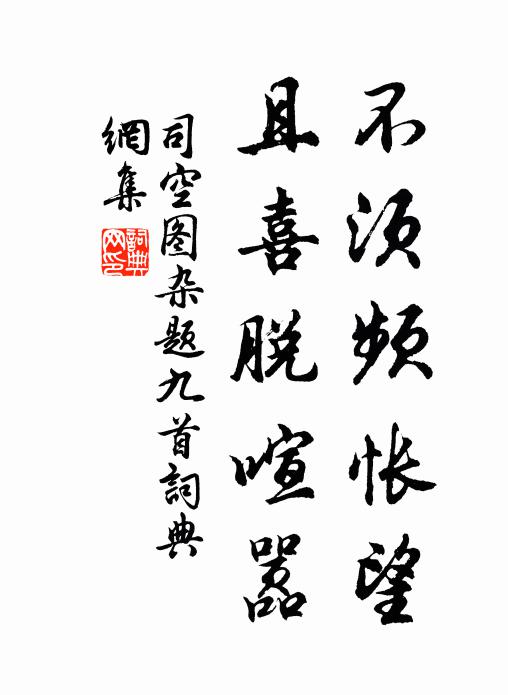 不须频怅望
且喜脱喧嚣
司空图杂题九首詞典
網集
詞典
网印